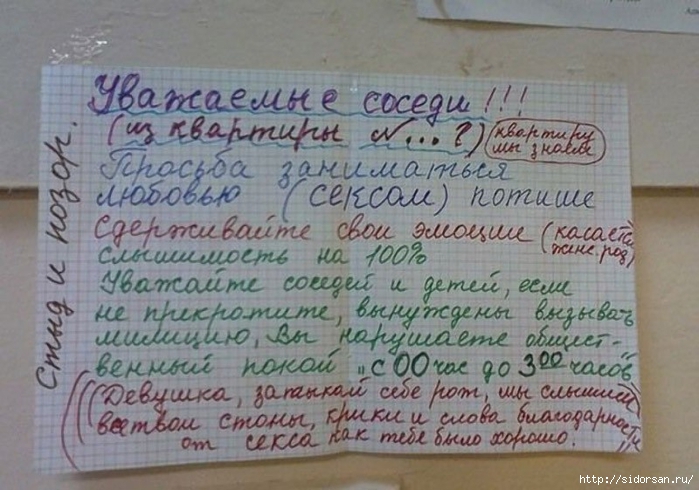 Стыд и позор.
Уважаемые соседи!!!
(из квартиры №...?) (квартиру мы знаем)
Просьба заниматься
любовью (сексом) потише
Сдерживайте свои эмоции (касается женс. род)
слышимость на 100%
Уважайте соседей и детей, если
не прекратите, вынуждены вызывать
милицию, Вы нарушаете общест-
венный покой "с 00 час до 3 00 часов"
((Девушка, затыкай себе рот, мы слышим
все твои стоны, крики и слова благодарности
от секса как тебе было хорошо.))
http://sidorsan.ru/